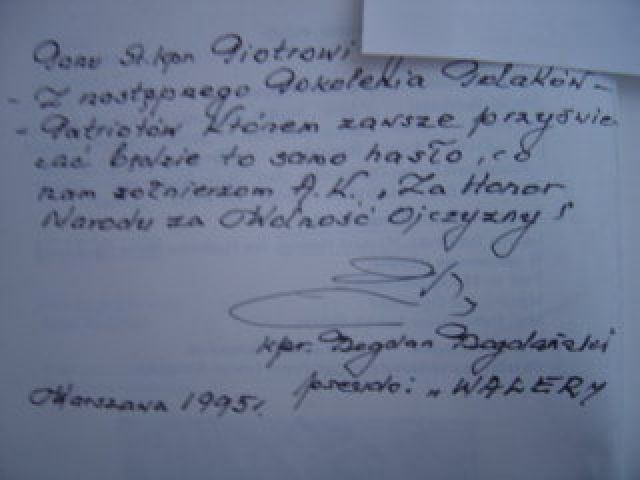 Panu st. kpr. Piotrowi
- Z następnego Pokolenia Polaków -
- Patriotów którem zawsze przyświe
cać będzie to samo hasło, co
nam żołnierzom A.K. „Za Honor
Narodu za Wolność Ojczyzny!
kpr. Bogdan
pseudo: „WALERY
Warszawa 1995r.